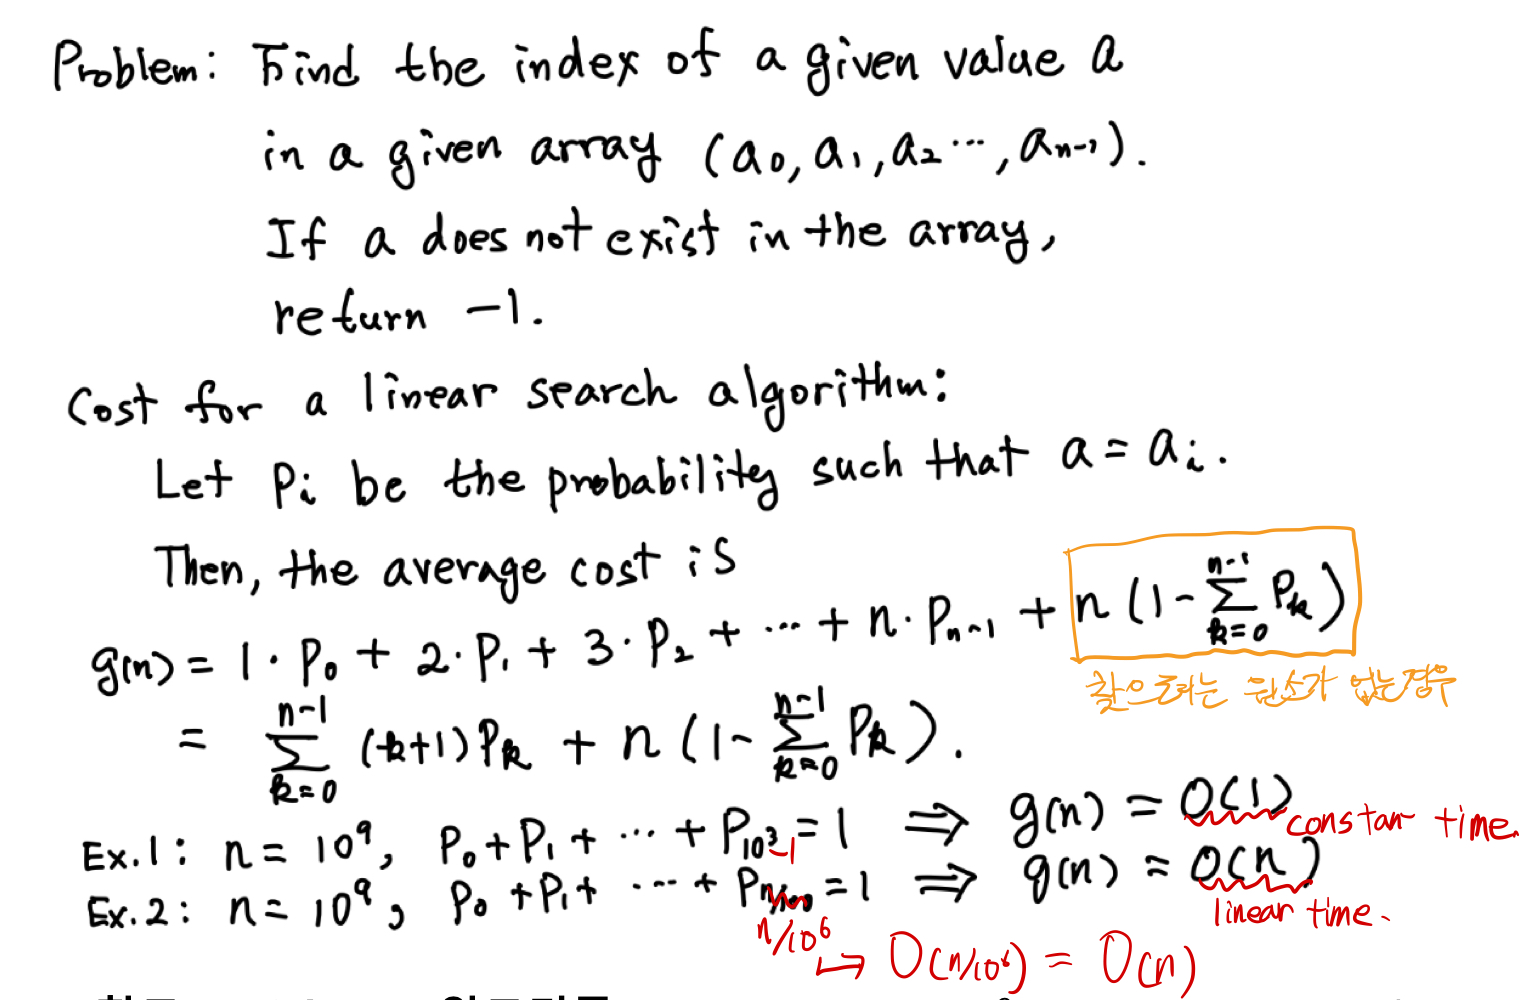 Problem: Find the index of a given value a
in a given array (a₀, a₁, a₂ ⋯, aₙ₋₁).
If a does not exist in the array,
return -1.
Cost for a linear search algorithm:
Let Pᵢ be the probability such that a = aᵢ.
Then, the average cost is
g(n) = 1·P₀ + 2·P₁ + 3·P₂ + ⋯ + n·Pₙ₋₁ + n(1-∑_{k=0}^{n-1} Pₖ)
찾으려는 원소가 없는 경우
= ∑_{k=0}^{n-1} (k+1)Pₖ + n(1-∑_{k=0}^{n-1} Pₖ).
Ex.1: n = 10⁹, P₀+P₁+ ⋯ + P_{10³-1} = 1 ⇒ g(n) = O(1) constan time.
Ex.2: n = 10⁹, P₀+P₁+ ⋯ + P = 1 ⇒ g(n) = O(n)
n/10⁶ linear time.
↳ O(n/10⁶) = O(n)